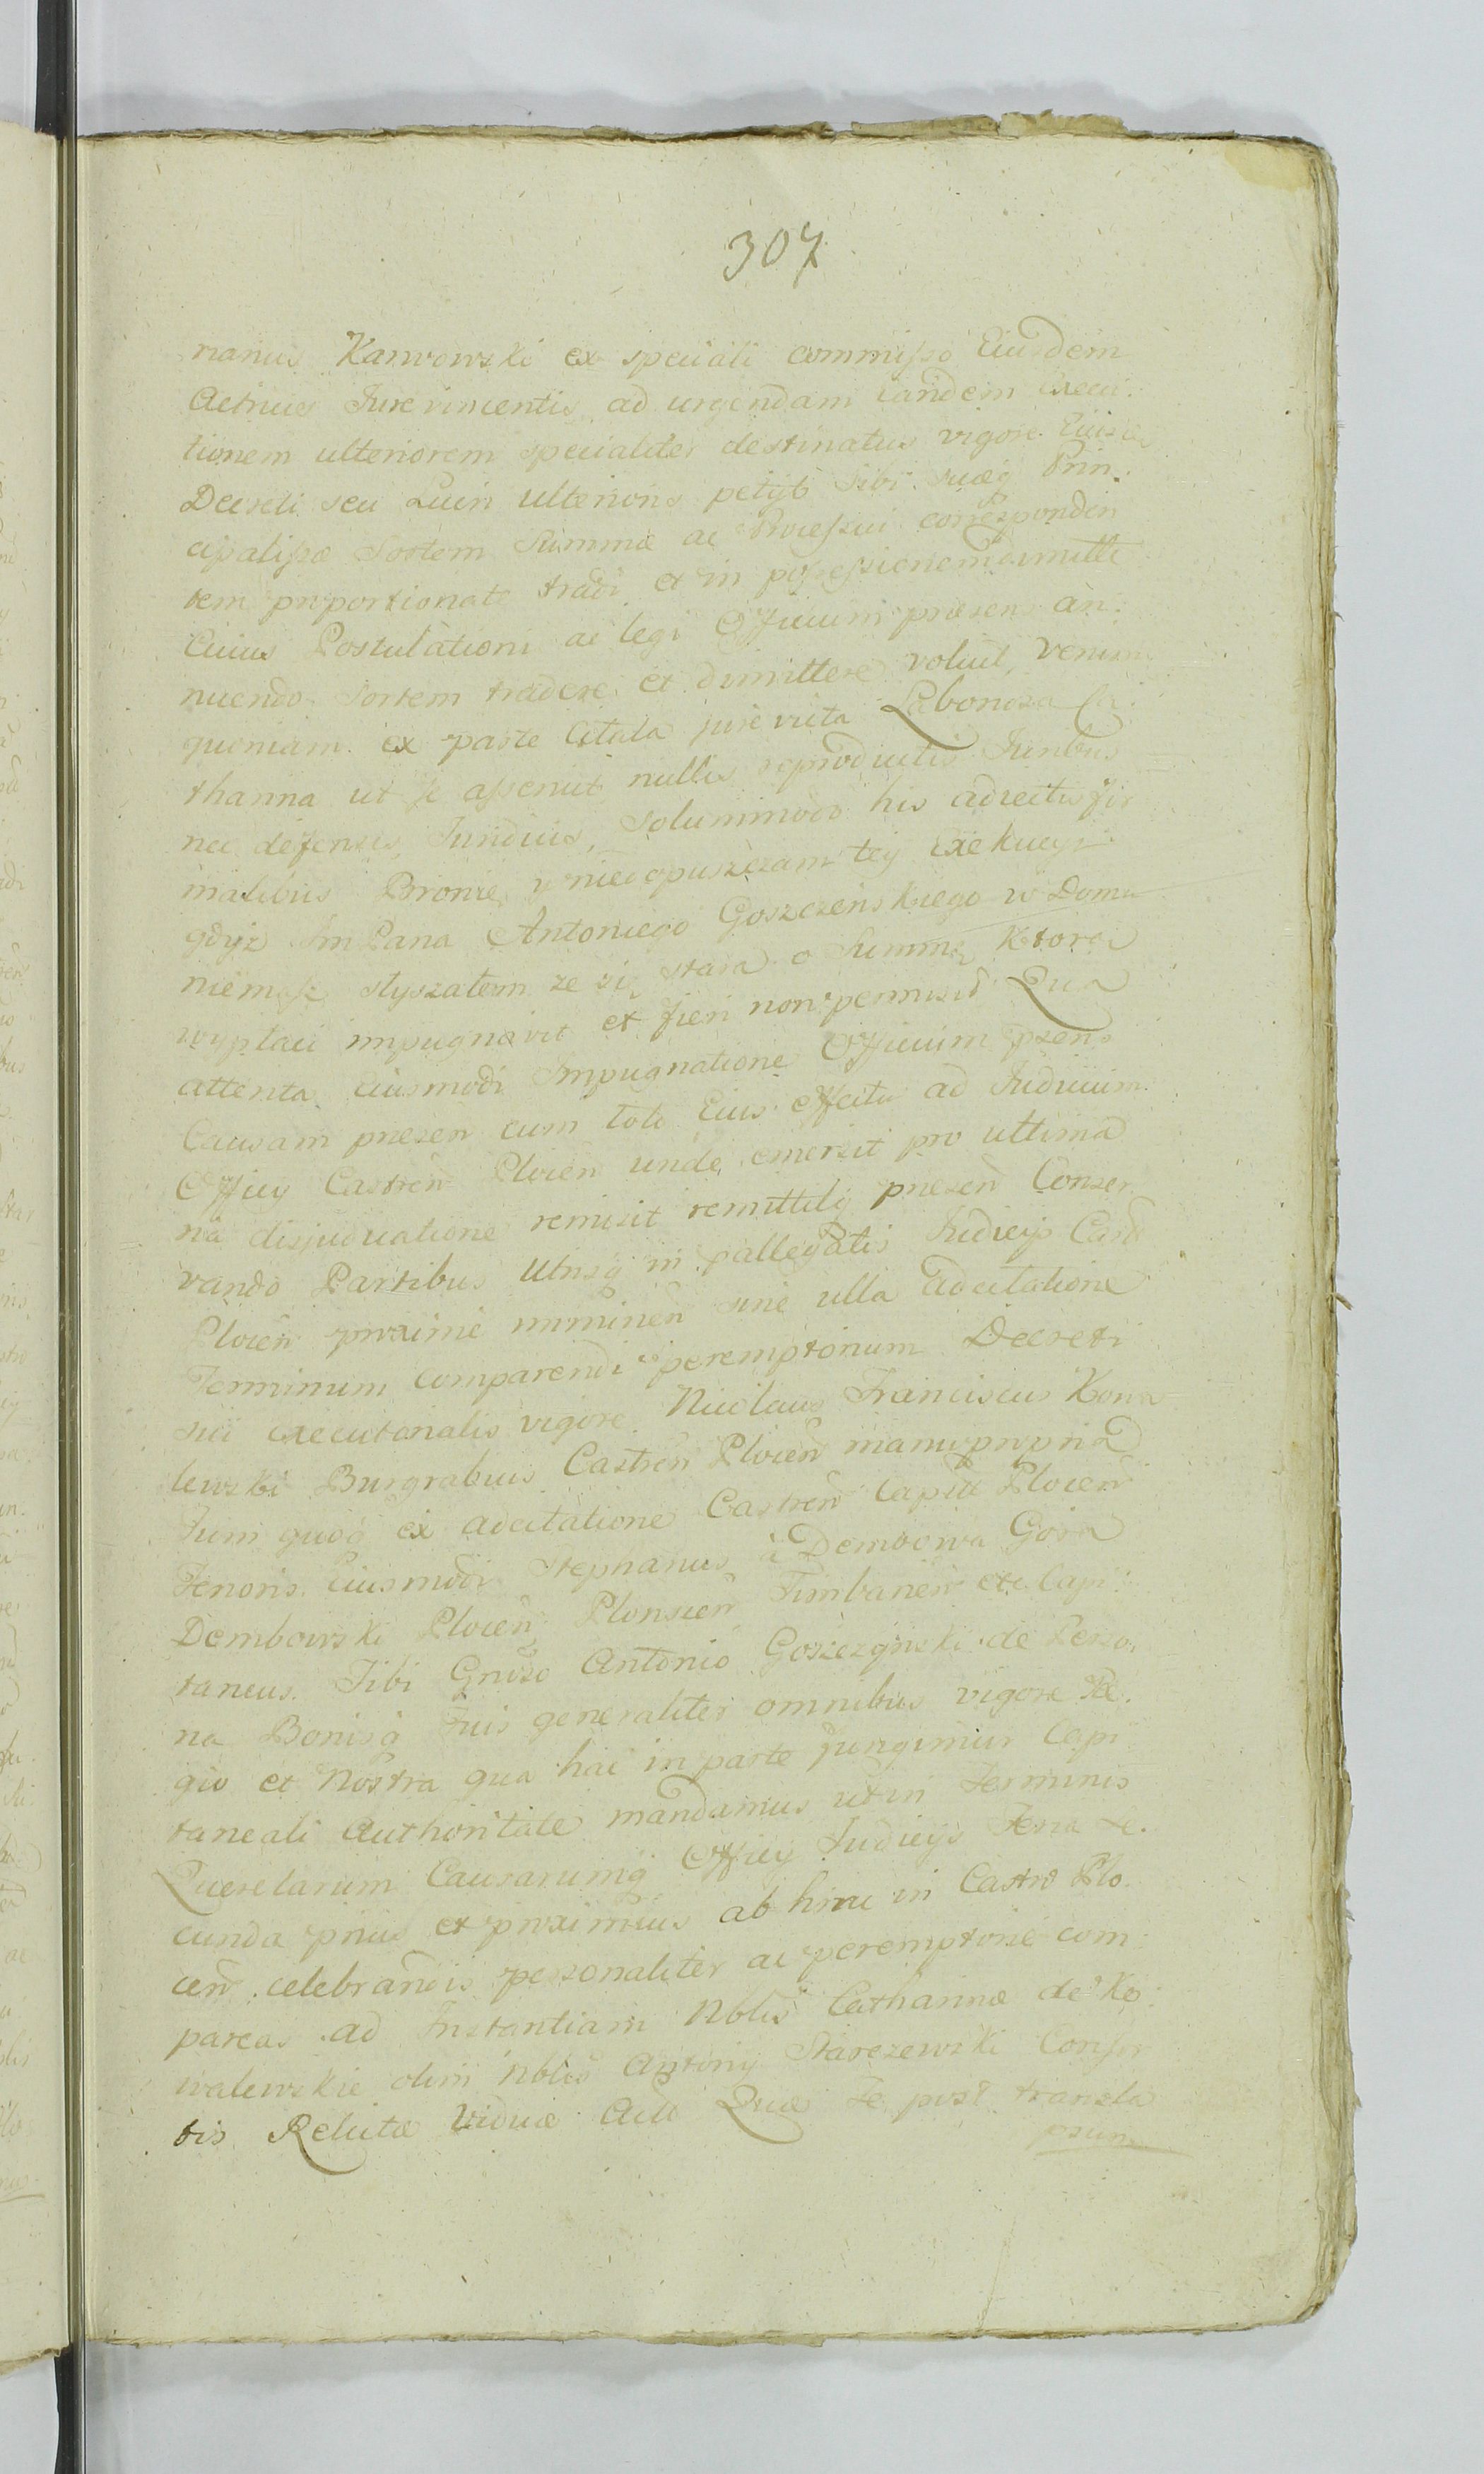 307
nanus Karwowski ex speciali commisso Eiusdem
Actricis Jurevincentis ad urgendam eandem Execu-
tionem ulteriorem specialiter destinatus vigore Eius
Decreti seu Luiti ulterioris petijt sibi suæq Prin-
cipalissæ Sortem Summæ ac Processui corresponden
tem proportionat tradi et in possessionem dimitti
Cuius Postulationi ac legi Officium præsens an-
nuendo Sortem tradere et dimittere voluit, Verum
quoniam ex parte Citata jurevicta Laboriosa Ca-
tharina ut se asseruit nullis reproductis Juribus
nec defensis Juridicis, solummodo his adrecitis for
malibus Bronię y niedopuszczam tey Exekucyi
gdyż Jm Pana Antoniego Goszczeńskiego w Domu
niemasz słyszałem ze się stara o Summę ktorą
wypłaci impugnavit et fieri non permisit Qua
attenta Eiusmodi Impugnatione Officium præns
Causam præsen cum toto Eius effectu ad Judicium
Officy Castren Plocen unde emersit pro ultima
na disjudicatione remisit remittitq præsen Conser
vando Partibus Utrisq in pallegatis Judicijs Castr
Plocen proxime imminen sine ulla adcitatione
Terminum comparendi peremptorium Decreti
sui executorialis vigore Nicolaus Franciscus Kowa
lewski Burgrabius Castren Plocen manu propria
Tum quoq ex adcitatione Castren Capitli Plocen
Tenoris Eiusmodi Stephanus à Dembowa Gora
Dembowski Plocen Plonscen Timbanen etc Capi-
taneus. Tibi Groso Antonio Goszczynski de Perso-
na Bonisq Tuis generaliter omnibus vigore Re-
gio et Nostra qua hac in parte fungimur Capi
taneali Authoritate mandamus ut in Terminis
Querelarum Causarumq Officy Judicijs Feria se-
cunda prius et proximius ab hinc in Castro Plo-
cen celebrandis personaliter ac peremptorie com-
pareas ad Instantiam Nblis Catharinæ de Ko-
walewskie olim Nblis Antonij Starczewski Consor
tis Relictæ Viduæ Acto Quæ Te post transla
psum